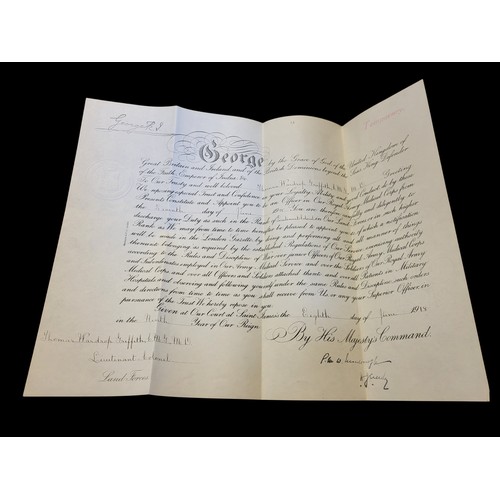 George R.I.
George by the Grace of God of the United Kingdom of
Great Britain and Ireland and of the British Dominions beyond the Seas King Defender
of the Faith, Emperor of India &c.
To Our Trusty and well beloved Thomas Wardrop Griffith, C.M.G., M.D. Greeting
We, reposing especial Trust and Confidence in your Loyalty, Courage and good Conduct, do by these
Presents Constitute and Appoint you to be an Officer in Our Royal Army Medical Corps from
the day of You are therefore carefully and diligently to
discharge your Duty as such in the Rank of or in such higher
Rank as We may from time to time hereafter be pleased to appoint you to, of which a notification
will be made in the London Gazette, by doing and performing all and all manner of things
thereunto belonging as required by the established Regulations of Our Service
according to the Rules and Discipline of War over Officers of Our Royal Army Medical Corps
and Subordinates employed in Our Army Medical Service and over the Soldiers of Our Royal Army
Medical Corps and over all Officers and Soldiers attached thereto and over all Patients in Military
Hospitals and observing and following yourself under the same Rules and Discipline such orders
and directions from time to time as you shall receive from Us, or any your Superior Officer in
pursuance of the Trust We hereby repose in you.
Given at Our Court at Saint James's the Eighth day of June 191
in the Ninth Year of Our Reign.
By His Majesty's Command.
Thomas Wardrop Griffith, C.M.G., M.D.
Lieutenant Colonel
Land Forces